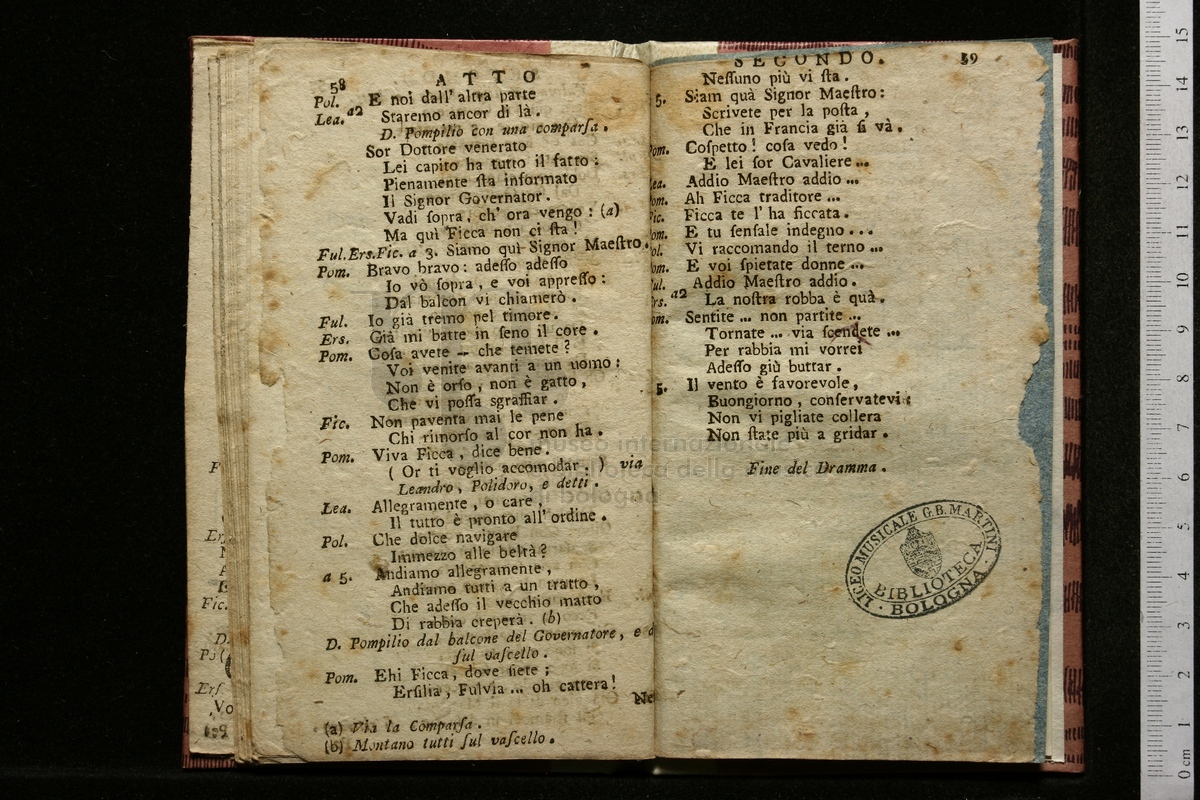 58
ATTO
Pol. E noi dall' altra parte
Lea. a2 Staremo ancor di là.
D. Pompilio con una comparſa.
Sor Dottore venerato
Lei capito ha tutto il fatto:
Pienamente ſta informato
Il Signor Governator.
Vadi ſopra, ch' ora vengo: (a)
Ma quì Ficca non ci ſta!
Ful. Ers. Fic. a 3. Siamo quì Signor Maeſtro.
Pom. Bravo bravo: adeſſo adeſſo
Io vò ſopra, e voi appreſſo:
Dal balcon vi chiamerò.
Ful. Io già tremo pel timore.
Ers. Già mi batte in ſeno il core.
Pom. Coſa avete - che temete?
Voi venite avanti a un uomo:
Non è orſo, non è gatto,
Che vi poſſa sgraffiar.
Fic. Non paventa mai le pene
Chi rimorſo al cor non ha.
Pom. Viva Ficca, dice bene.
( Or ti voglio accomodar. ) via
Leandro, Polidoro, e detti.
Lea. Allegramente, o care,
Il tutto è pronto all' ordine.
Pol. Che dolce navigare
Immezzo alle beltà?
a 5. Andiamo allegramente,
Andiamo tutti a un tratto,
Che adeſſo il vecchio matto
Di rabbia creperà. (b)
D. Pompilio dal balcone del Governatore, e
ſul vaſcello.
Pom. Ehi Ficca, dove ſiete;
Erſilia, Fulvia ... oh cattera!
Ne
(a) Via la Comparſa.
(b) Montano tutti ſul vaſcello.
SECONDO. 59
Neſſuno più vi ſta.
5. Siam quà Signor Maeſtro:
Scrivete per la poſta,
Che in Francia già ſi và.
om. Coſpetto! coſa vedo!
E lei ſor Cavaliere ...
ea. Addio Maeſtro addio ...
om. Ah Ficca traditore ...
ic. Ficca te l' ha ficcata.
om. E tu ſenſale indegno ...
ol. Vi raccomando il terno ...
om. E voi ſpietate donne ...
ul. Addio Maeſtro addio.
rs. a2 La noſtra robba è quà.
om. Sentite ... non partite ...
Tornate ... via ſcendete ...
Per rabbia mi vorrei
Adeſſo giù buttar.
5. Il vento è favorevole,
Buongiorno, conſervatevi:
Non vi pigliate collera
Non ſtate più a gridar.
Fine del Dramma.
LICEO MUSICALE G.B. MARTINI
BIBLIOTECA
BOLOGNA
museo internazionale
e biblioteca della
di bologna
F
Fic.
D.
Erſ
Vo
0 cm 1 2 3 4 5 6 7 8 9 10 11 12 13 14 15